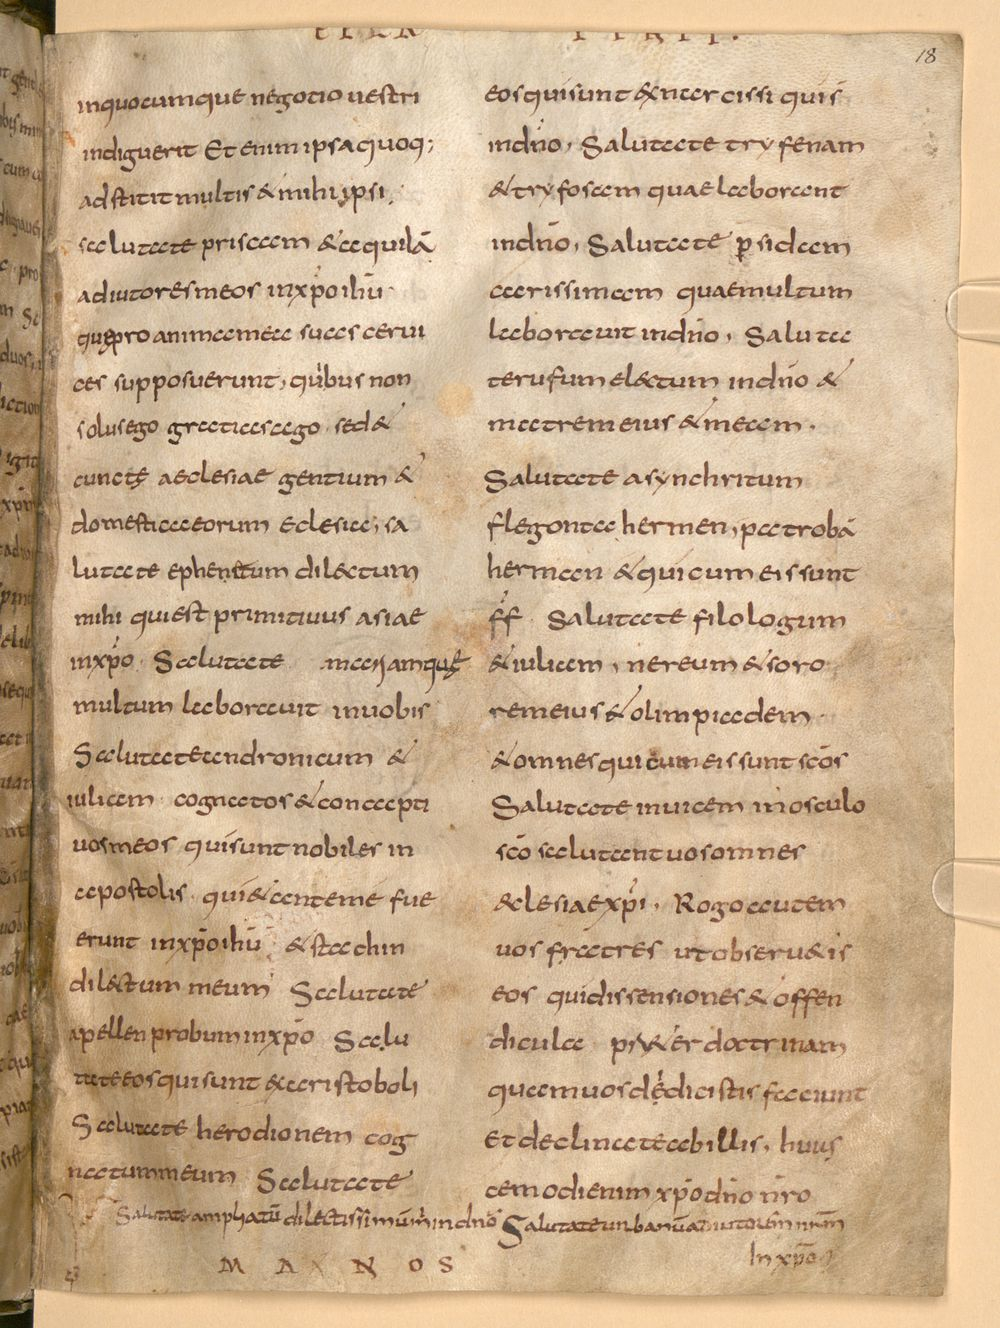 18
inquocumque negotio uestri
indiguerit Et enim ipsa quoq;
adstitit multis & mihi ipsi.
salutate priscam & aquilā
adiutores meos inxp̄o ihū
quę pro anima mea suas cerui
ces supposuerunt, quibus non
solus ego gratias ago sed &
cunctę aeclesiae gentium &
domesticaeorum eclesia; sa
lutate ephenetum dilectum
mihi qui est primitiuus asiae
inxp̄o Salutate mariam quę
multum laborauit inuobis
Salutate andronicum &
iulicem cognatos & concapti
uos meos qui sunt nobiles in
apostolis qui & ante me fue
erunt inxp̄o ihū & stachin
dilectum meum Salutate
apellen probum inxp̄o Salu
tate eos qui sunt exaristoboli
Salutate herodionem cog
natum meum Salutate
Salutate ampliatū dilectissimum m̄ in dn̄o Salutate urbanū adiutorem nr̄m
In xp̄o
M A N O S
eos qui sunt ex narcissi quis
indn̄o, Salutate tryfenam
& tryfosam quae laborant
indn̄o, Salutate p̄sidam
carissimam quae multum
laborauit indn̄o, Saluta
te rufum electum indn̄o &
matrem eius & meam.
Salutate asynchritum
flegonta hermen, patrobā
herman & qui cum eis sunt
ff Salutate filologum
& iulicem, nereum & soro
rem eius & olimpiadem
& omnes qui cum eis sunt sc̄os
Salutate inuicem in osculo
sc̄o salutant uos omnes
æclesiae xp̄i, Rogo autem
uos fratres ut obseruetis
eos qui dissensiones & offen
dicula p̄ter doctrinam
quam uos dedicistis faciunt
Et declinate abillis, huius
cemodi enim xp̄o dn̄o nr̄o